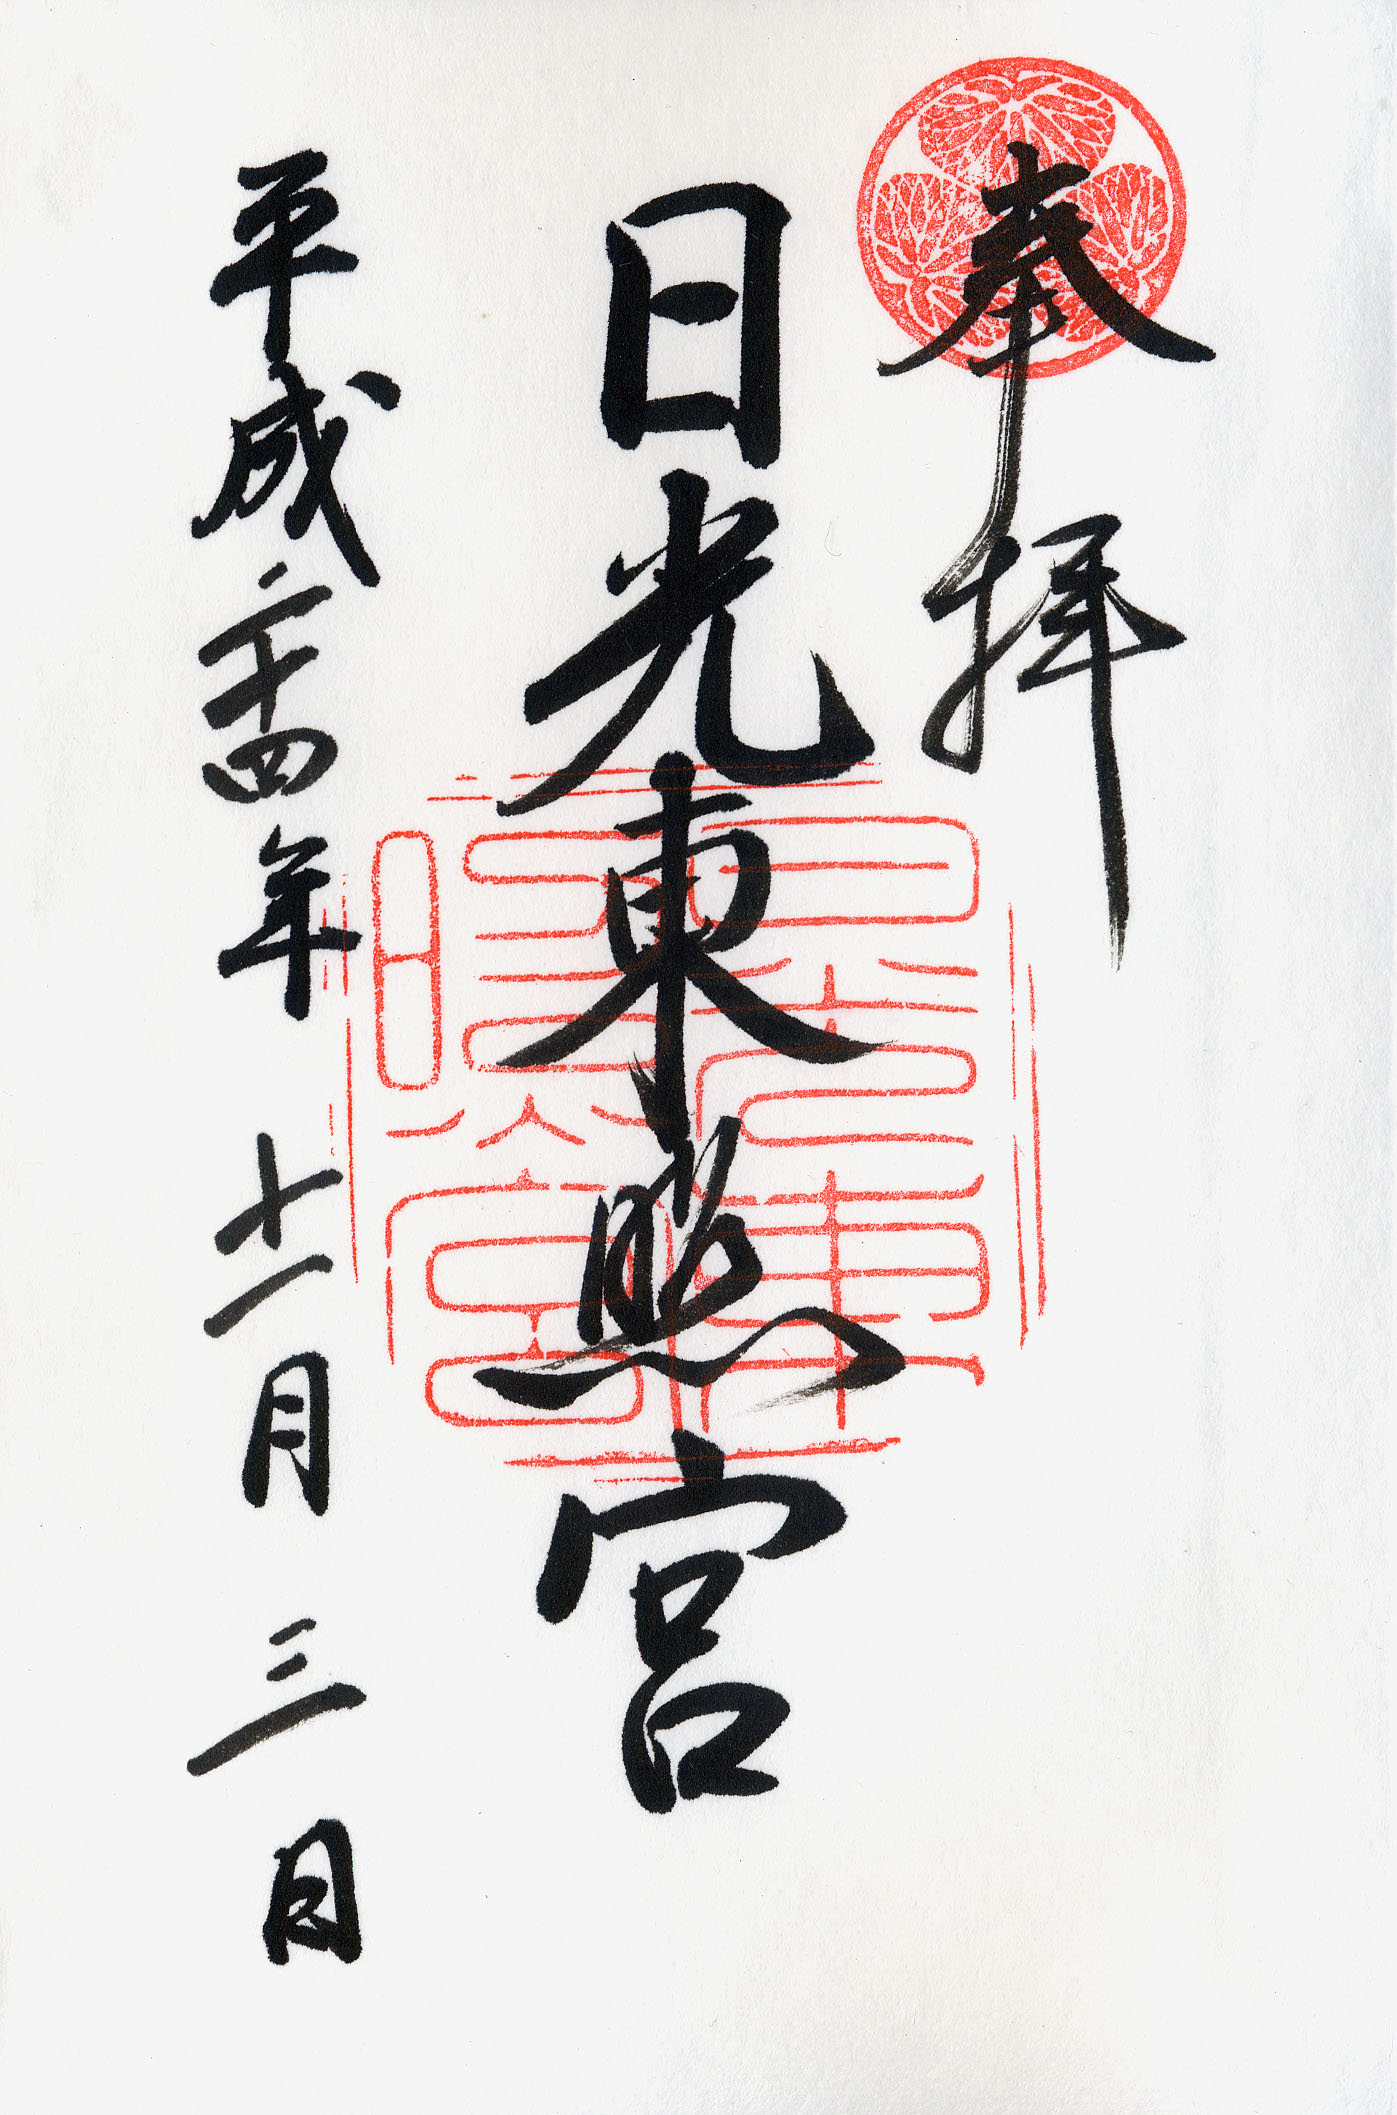 奉拝
日光東照宮
平成二十四年十一月三日
日光東照宮